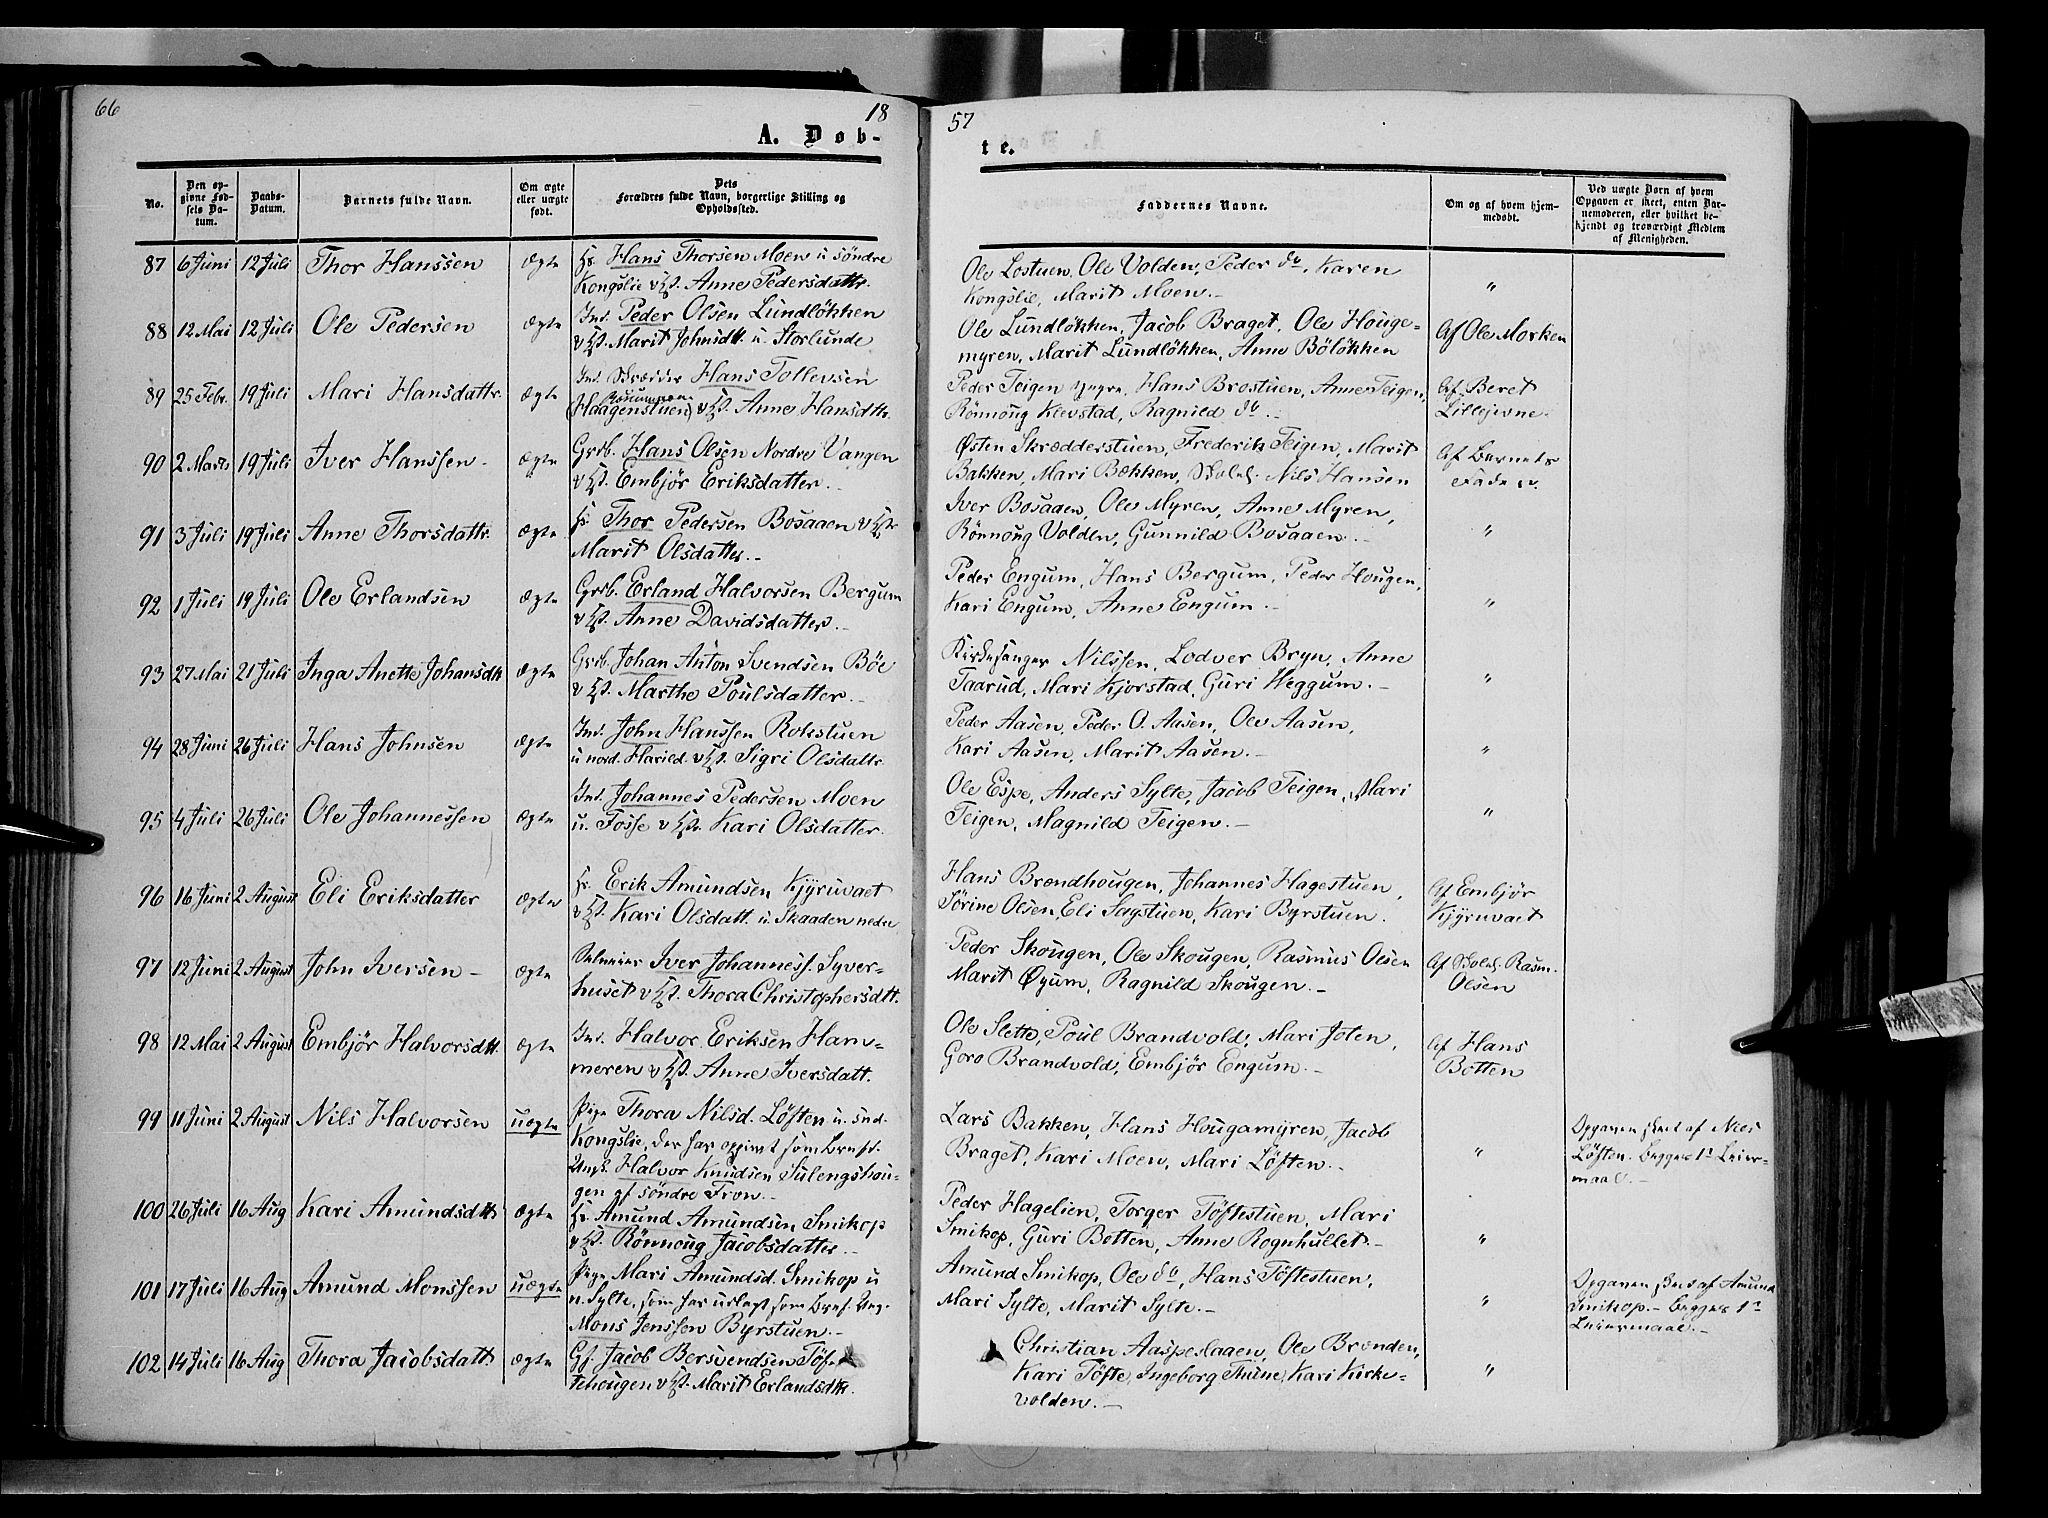 66
18
57
A. Døb-
te.
No.
Den op-
givne Fød-
sels Da-
tum.
Daabs-
Datum.
Barnets fulde Navn.
Om ægte
eller uægte
født.
Dets
Forældres fulde Navn, borgerlige Stilling og
Opholdssted.
Faddernes Navne.
Om og af hvem hjem-
medøbt.
Ved uægte Børn af hvem
Opgaven er skeet, enten Bar-
nemoderen, eller hvilket be-
kjendt og troværdigt Medlem
af Menigheden.
87 6 Juni 12 Juli Thor Hanssen ægte Hans Thorsen Moen u søndre
Kongslie Anne Pedersdattr.
Ole Lostuen, Ole Volden, Peder do, Karen
Kongslie, Marit Moen.-
"
88 12 Mai 12 Juli Ole Pedersen ægte Ind. Peder Olsen Lundløkken
Marit Johnsdtt. u. Storlunde
Ole Lundløkken, Jacob Braget, Ole Houge-
myren, Marit Lundløkken, Anne Böløkken
Af Ole Morken
89 25 Febr. 19 Juli Mari Hansdattr. ægte Ind. Skrædder Hans Tollevsen
(Haagenstuen) Anne Hansdtt.
Peder Teigen yngre, Hans Brostuen, Anne Teigen,
Rönnoug Klevstad, Ragnild do.-
Af Beret
Lillejevne.
90 2 Marts 19 Juli Iver Hanssen. ægte Grb. Hans Olsen Nordre Vangen
Embjør Eriksdatter.
Østen Skrædderstuen, Frederik Teigen, Marit
Bakken, Mari Bækken, Skolel. Nils Hansen
Af Barnets
Fader.
91 3 Juli 19 Juli Anne Thorsdattr. ægte Thor Pedersen Bosaaen
Marit Olsdatter.-
Iver Bosaaen, Ole Myren, Anne Myren,
Rönnoug Volden, Gunnild Bosaaen.-
"
92 1 Juli 19 Juli Ole Erlandsen ægte Grb. Erland Halvorsen Bergum
Anne Davidsdatter.-
Peder Engum, Hans Bergum, Peder Hougen,
Kari Engum, Anne Engum.-
"
93 27 Mai 21 Juli Inga Anette Johansdtt ægte Grb. Johan Anton Svendsen Böe
Marthe Poulsdatter.-
Kirkesanger Nilssen, Lodver Bryn, Anne
Taarud, Mari Kjorstad, Guri Heggum.-
"
94 28 Juni 26 Juli Hans Johnsen ægte Ind. John Hanssen Rokstuen
u nord. Harild. Sigri Olsdattr.
Peder Aasen, Peder O. Aasen, Ole Aasen,
Kari Aasen, Marit Aasen.-
"
95 4 Juli 26 Juli Ole Johannessen ægte Ind. Johannes Pedersen Moen
u. Fosse Kari Olsdatter.
Ole Espe, Anders Sylte, Jacob Teigen, Mari
Teigen, Magnild Teigen.-
"
96 16 Juni 2 August Eli Eriksdatter ægte Erik Amundsen Kjyruvaet
Kari Olsdatt. u. Skaaden nedre
Hans Brændhougen, Johannes Hagestuen,
Sörine Olsen, Eli Sagstuen, Kari Byrstuen.
Af Embjör
Kjyruvaet
97 12 Juni 2 August John Iversen- ægte Iver Johanness. Syver-
huset Thora Christophersdtt.
Peder Skougen, Ole Skougen, Rasmus Olsen
Marit Øyum, Ragnild Skougen.-
Af Skolel. Rasm.
Olsen
98 12 Mai 2 August Embjör Halvorsdtt. ægte Ind. Halvor Eriksen Ham-
meren Anne Iversdatt.
Ole Slette, Poul Brandvold, Mari Joten,
Goro Brandvold, Embjør Engum.-
Af Hans
Botten
99 11 Juni 2 August Nils Halvorsen uægte Pige Thora Nilsd. Løften u. snd.
Kongslie, der har opgivet som Barnef.
Ungk. Halvor Knudsen Sulengshou-
gen af søndre Fron.-
Lars Bakken, Hans Hougamyren, Jacob
Braget, Kari Moen, Mari Løften.-
"
Opgaven skeet af Nils
Løften. Begges 1ste Leier-
maal.-
100 26 Juli 16 Aug Kari Amundsdtt ægte Amund Amundsen Smikop
Rönnoug Jacobsdatter.-
Peder Hagelien, Torger Töftestuen, Mari
Smikop, Guri Botten, Anne Rognhullet.-
"
101 17 Juli 16 Aug Amund Monssen uægte Pige Mari Amundsd. Smikop u
n. Sylte, som har udlagt som Barnef. Ung.
Mons Jenssen Byrstuen.-
Amund Smikop, Ole do, Hans Töftestuen,
Mari Sylte, Marit Sylte.-
"
Opgaven skeet af Amund
Smikop.- Begges 1ste
Leiermaal.-
102 14 Juli 16 Aug Thora Jacobsdatt ægte Gf. Jacob Bersvendsen Töf-
tehougen Marit Erlandsdtt.
Christian Aaspeslaaen, Ole Brenden,
Kari Töfte, Ingeborg Thune, Kari Kirke-
volden.-
"